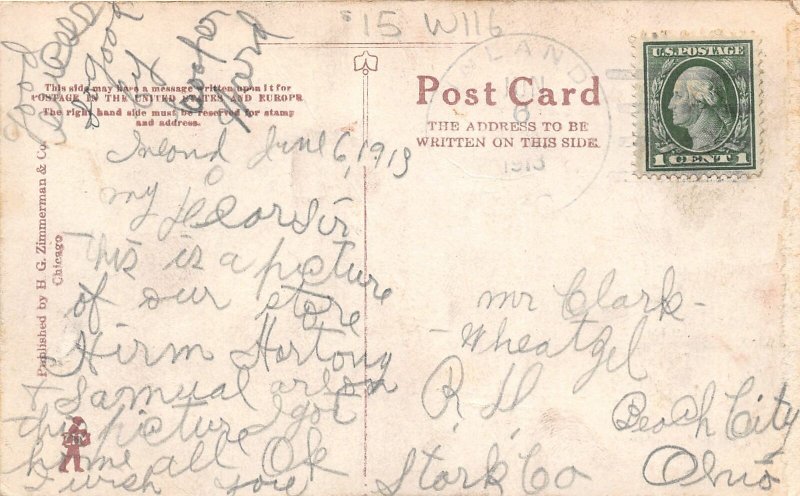 #15 W116
good
by
Hoofer
Yard
This side may have a message written upon it for
POSTAGE IN THE UNITED STATES AND EUROPE
The right hand side must be reserved for stamp
and address.
Post Card
THE ADDRESS TO BE
WRITTEN ON THIS SIDE.
INLAND
JUN
6
1913
U.S. POSTAGE
1 CENT 1
Published by H. G. Zimmerman & Co.
Chicago
Inlond June 6, 1913
my Dear Sir
This is a picture
of our store
Hirm Hortong
& Samual arson
this picture I got
home all Ok
I wish you
Mr Clark
Wheatzel
R. D
Beach City
Stark Co Ohio